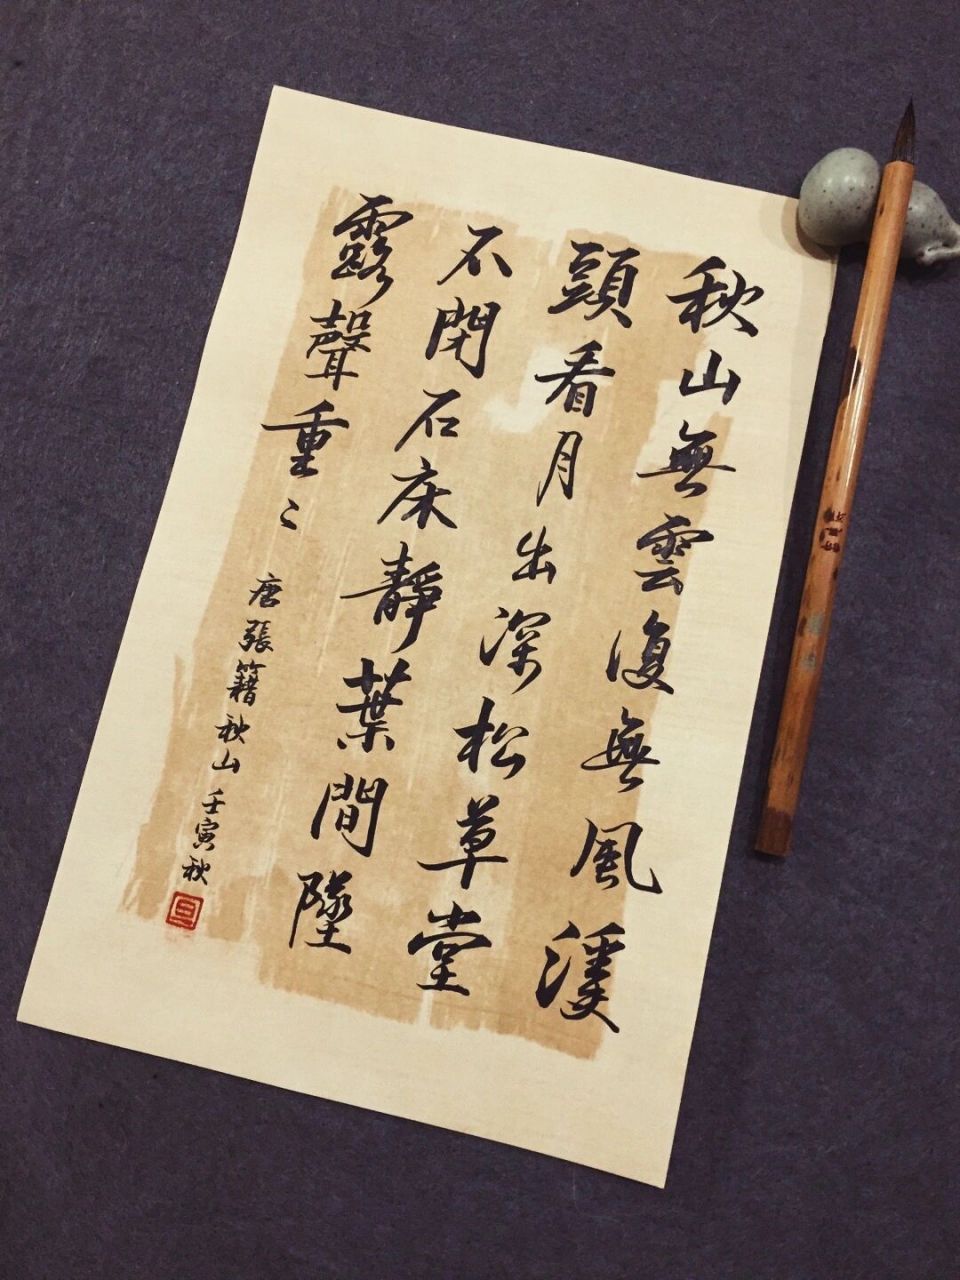 秋山無雲復無風溪
頭看月出深松草堂
不閉石床靜葉間墜
露聲重〻
唐張籍秋山 壬寅秋